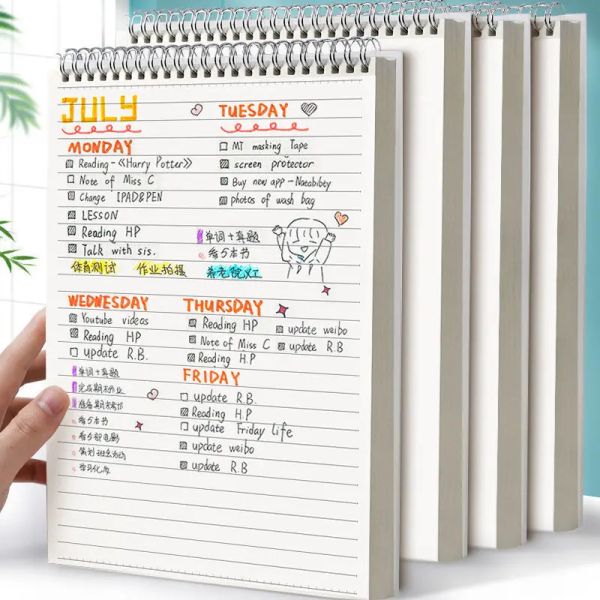 JULY
MONDAY
Reading-《Harry Potter》
Note of Miss C
Change IPAD&PEN
LESSON
Reading HP
Talk with sis.
体育测试 作业拍摄
TUESDAY
MT masking Tape
screen protector
Buy new app-Naeabibty
photos of wash bag
单词+真题
看5本书
WEDNESDAY
Youtube videos
Reading HP
update R.B.
单词+真题
完成期末作业
看5本书
看5部电影
学习化妆
THURSDAY
Reading HP
Note of Miss C
Reading H.P
update weibo
update R.B
FRIDAY
update R.B.
Reading H.P
update Friday life
update weibo
update R.B